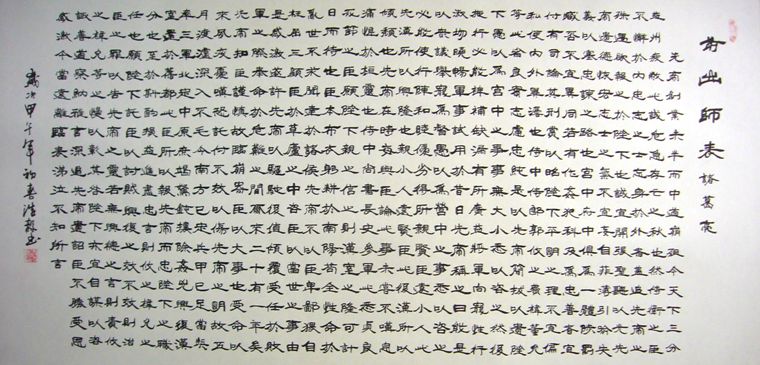 前出師表 諸葛亮
先帝創業未半而中道崩殂今天下三分
益州疲敝此誠危急存亡之秋也然侍衛之臣
不懈於內忠志之士忘身於外者蓋追先帝之
殊遇欲報之於陛下也誠宜開張聖聽以光先
帝遺德恢弘志士之氣不宜妄自菲薄引喻失
義以塞忠諫之路也宮中府中俱為一體陟罰
臧否不宜異同若有作奸犯科及為忠善者宜
付有司論其刑賞以昭陛下平明之理不宜偏
私使內外異法也侍中侍郎郭攸之費禕董允
等此皆良實志慮忠純是以先帝簡拔以遺陛
下愚以為宮中之事事無大小悉以咨之然後
施行必能裨補闕漏有所廣益將軍向寵性行
淑均曉暢軍事試用於昔日先帝稱之曰能是
以眾議舉寵為督愚以為營中之事悉以咨之
必能使行陣和睦優劣得所也親賢臣遠小人此
先漢所以興隆也親小人遠賢臣此後漢所以
傾頹也先帝在時每與臣論此事未嘗不歎息
痛恨於桓靈也侍中尚書長史參軍此悉貞良死
節之臣也願陛下親之信之則漢室之隆可計
日而待也臣本布衣躬耕於南陽苟全性命於
亂世不求聞達於諸侯先帝不以臣卑鄙猥自
枉屈三顧臣於草廬之中咨臣以當世之事由
是感激許先帝以驅馳後值傾覆受任於敗
軍之際奉命於危難之間爾來二十有一年矣
先帝知臣謹慎故臨崩寄臣以大事也受命以來
夙夜憂歎恐託付不效以傷先帝之明故五
月渡瀘深入不毛今南方已定兵甲已足當獎
率三軍北定中原庶竭駑鈍攘除姦凶興復漢
室還於舊都此臣所以報先帝而忠陛下之職
分也至於斟酌損益進盡忠言則攸之禕允之
任也願陛下託臣以討賊興復之效不效則治
臣之罪以告先帝之靈若無興德之言則責攸
之禕允等之慢以彰其咎陛下亦宜自謀以咨諏
善道察納雅言深追先帝遺詔臣不勝受恩
感激今當遠離臨表涕泣不知所言
歲次甲午年初春浩書